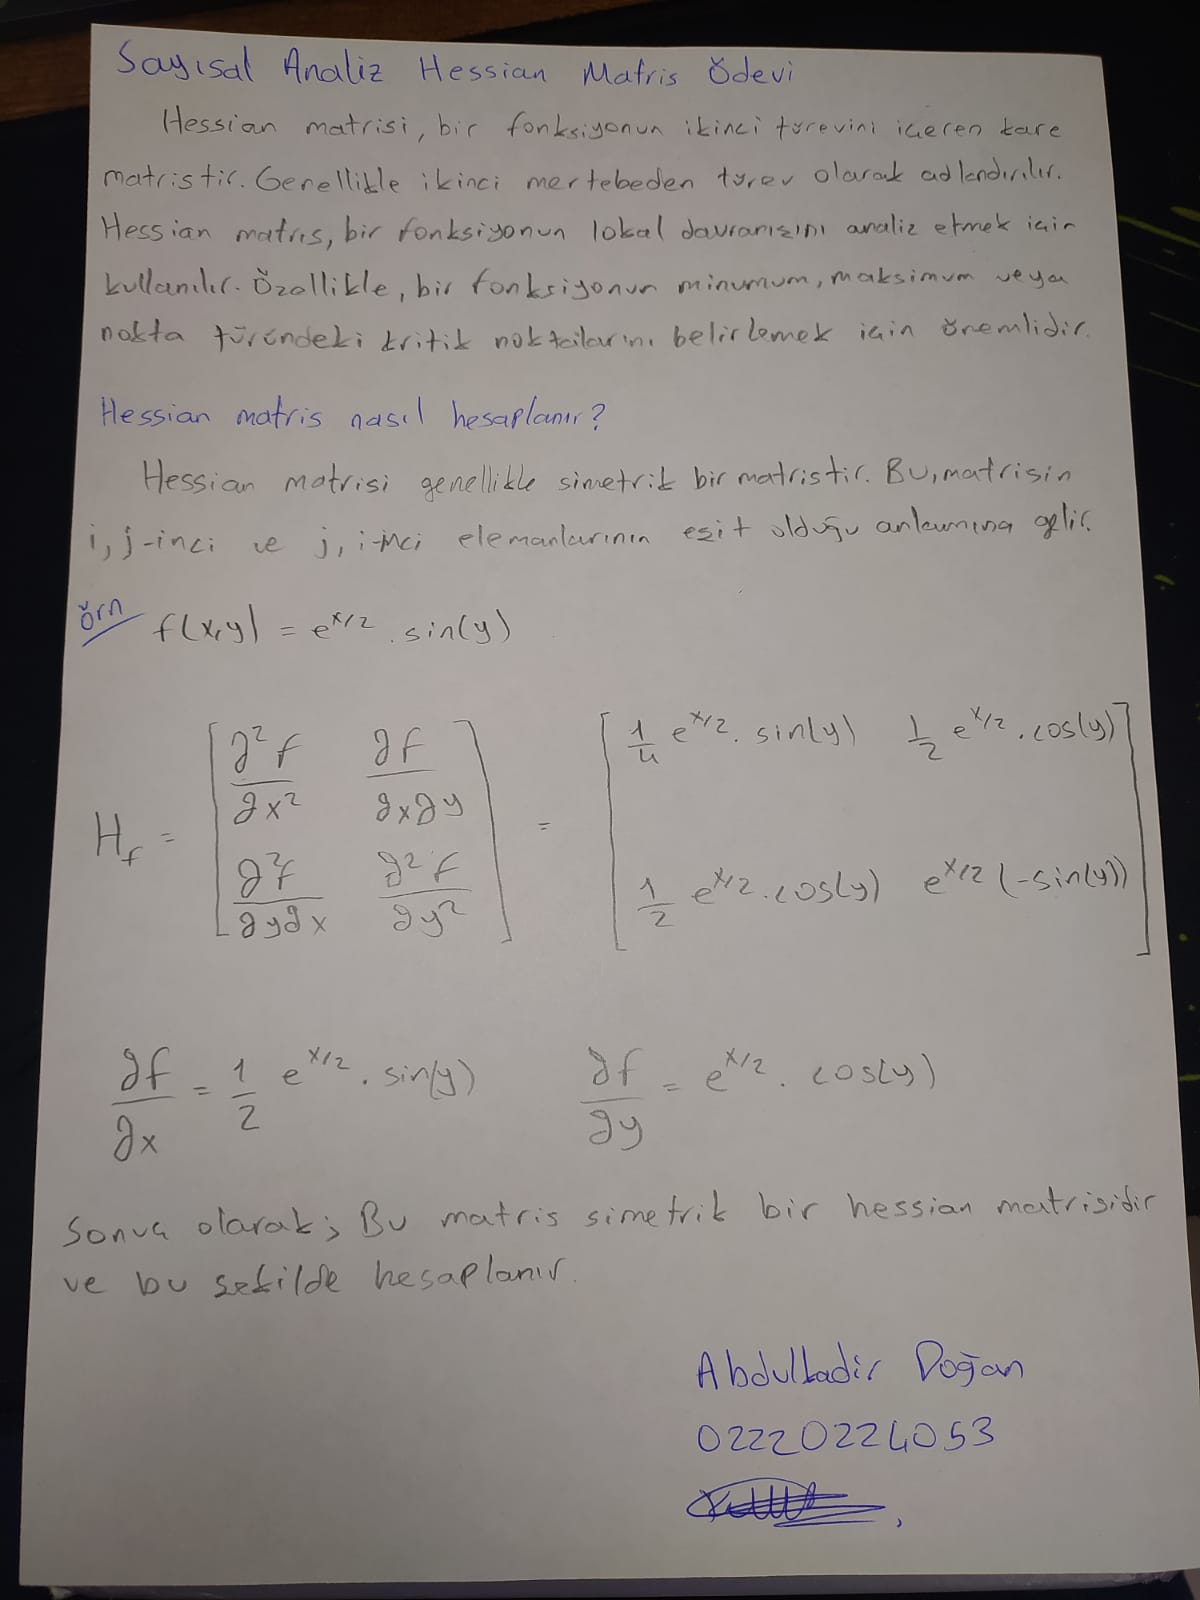 Sayısal Analiz Hessian Matris Ödevi
Hessian matrisi, bir fonksiyonun ikinci türevini içeren kare
matristir. Genellikle ikinci mertebeden türev olarak adlandırılır.
Hessian matris, bir fonksiyonun lokal davranışını analiz etmek için
kullanılır. Özellikle, bir fonksiyonun minumum, maksimum veya
nokta türündeki kritik noktalarını belirlemek için önemlidir.
Hessian matris nasıl hesaplanır?
Hessian matrisi genellikle simetrik bir matristir. Bu, matrisin
i, j-inci ve j, i-inci elemanlarının eşit olduğu anlamına gelir.
Örn f(x,y) = e^x/2 . sin(y)
H_f = [ ∂²f/∂x² ∂f/∂x∂y ; ∂²f/∂y∂x ∂²f/∂y² ] = [ 1/4 e^x/2 . sin(y) 1/2 e^x/2 . cos(y) ; 1/2 e^x/2 . cos(y) e^x/2 (-sin(y)) ]
∂f/∂x = 1/2 e^x/2 . sin(y) ∂f/∂y = e^x/2 . cos(y)
Sonuç olarak; Bu matris simetrik bir hessian matrisidir
ve bu şekilde hesaplanır.
Abdulkadir Doğan
02220224053